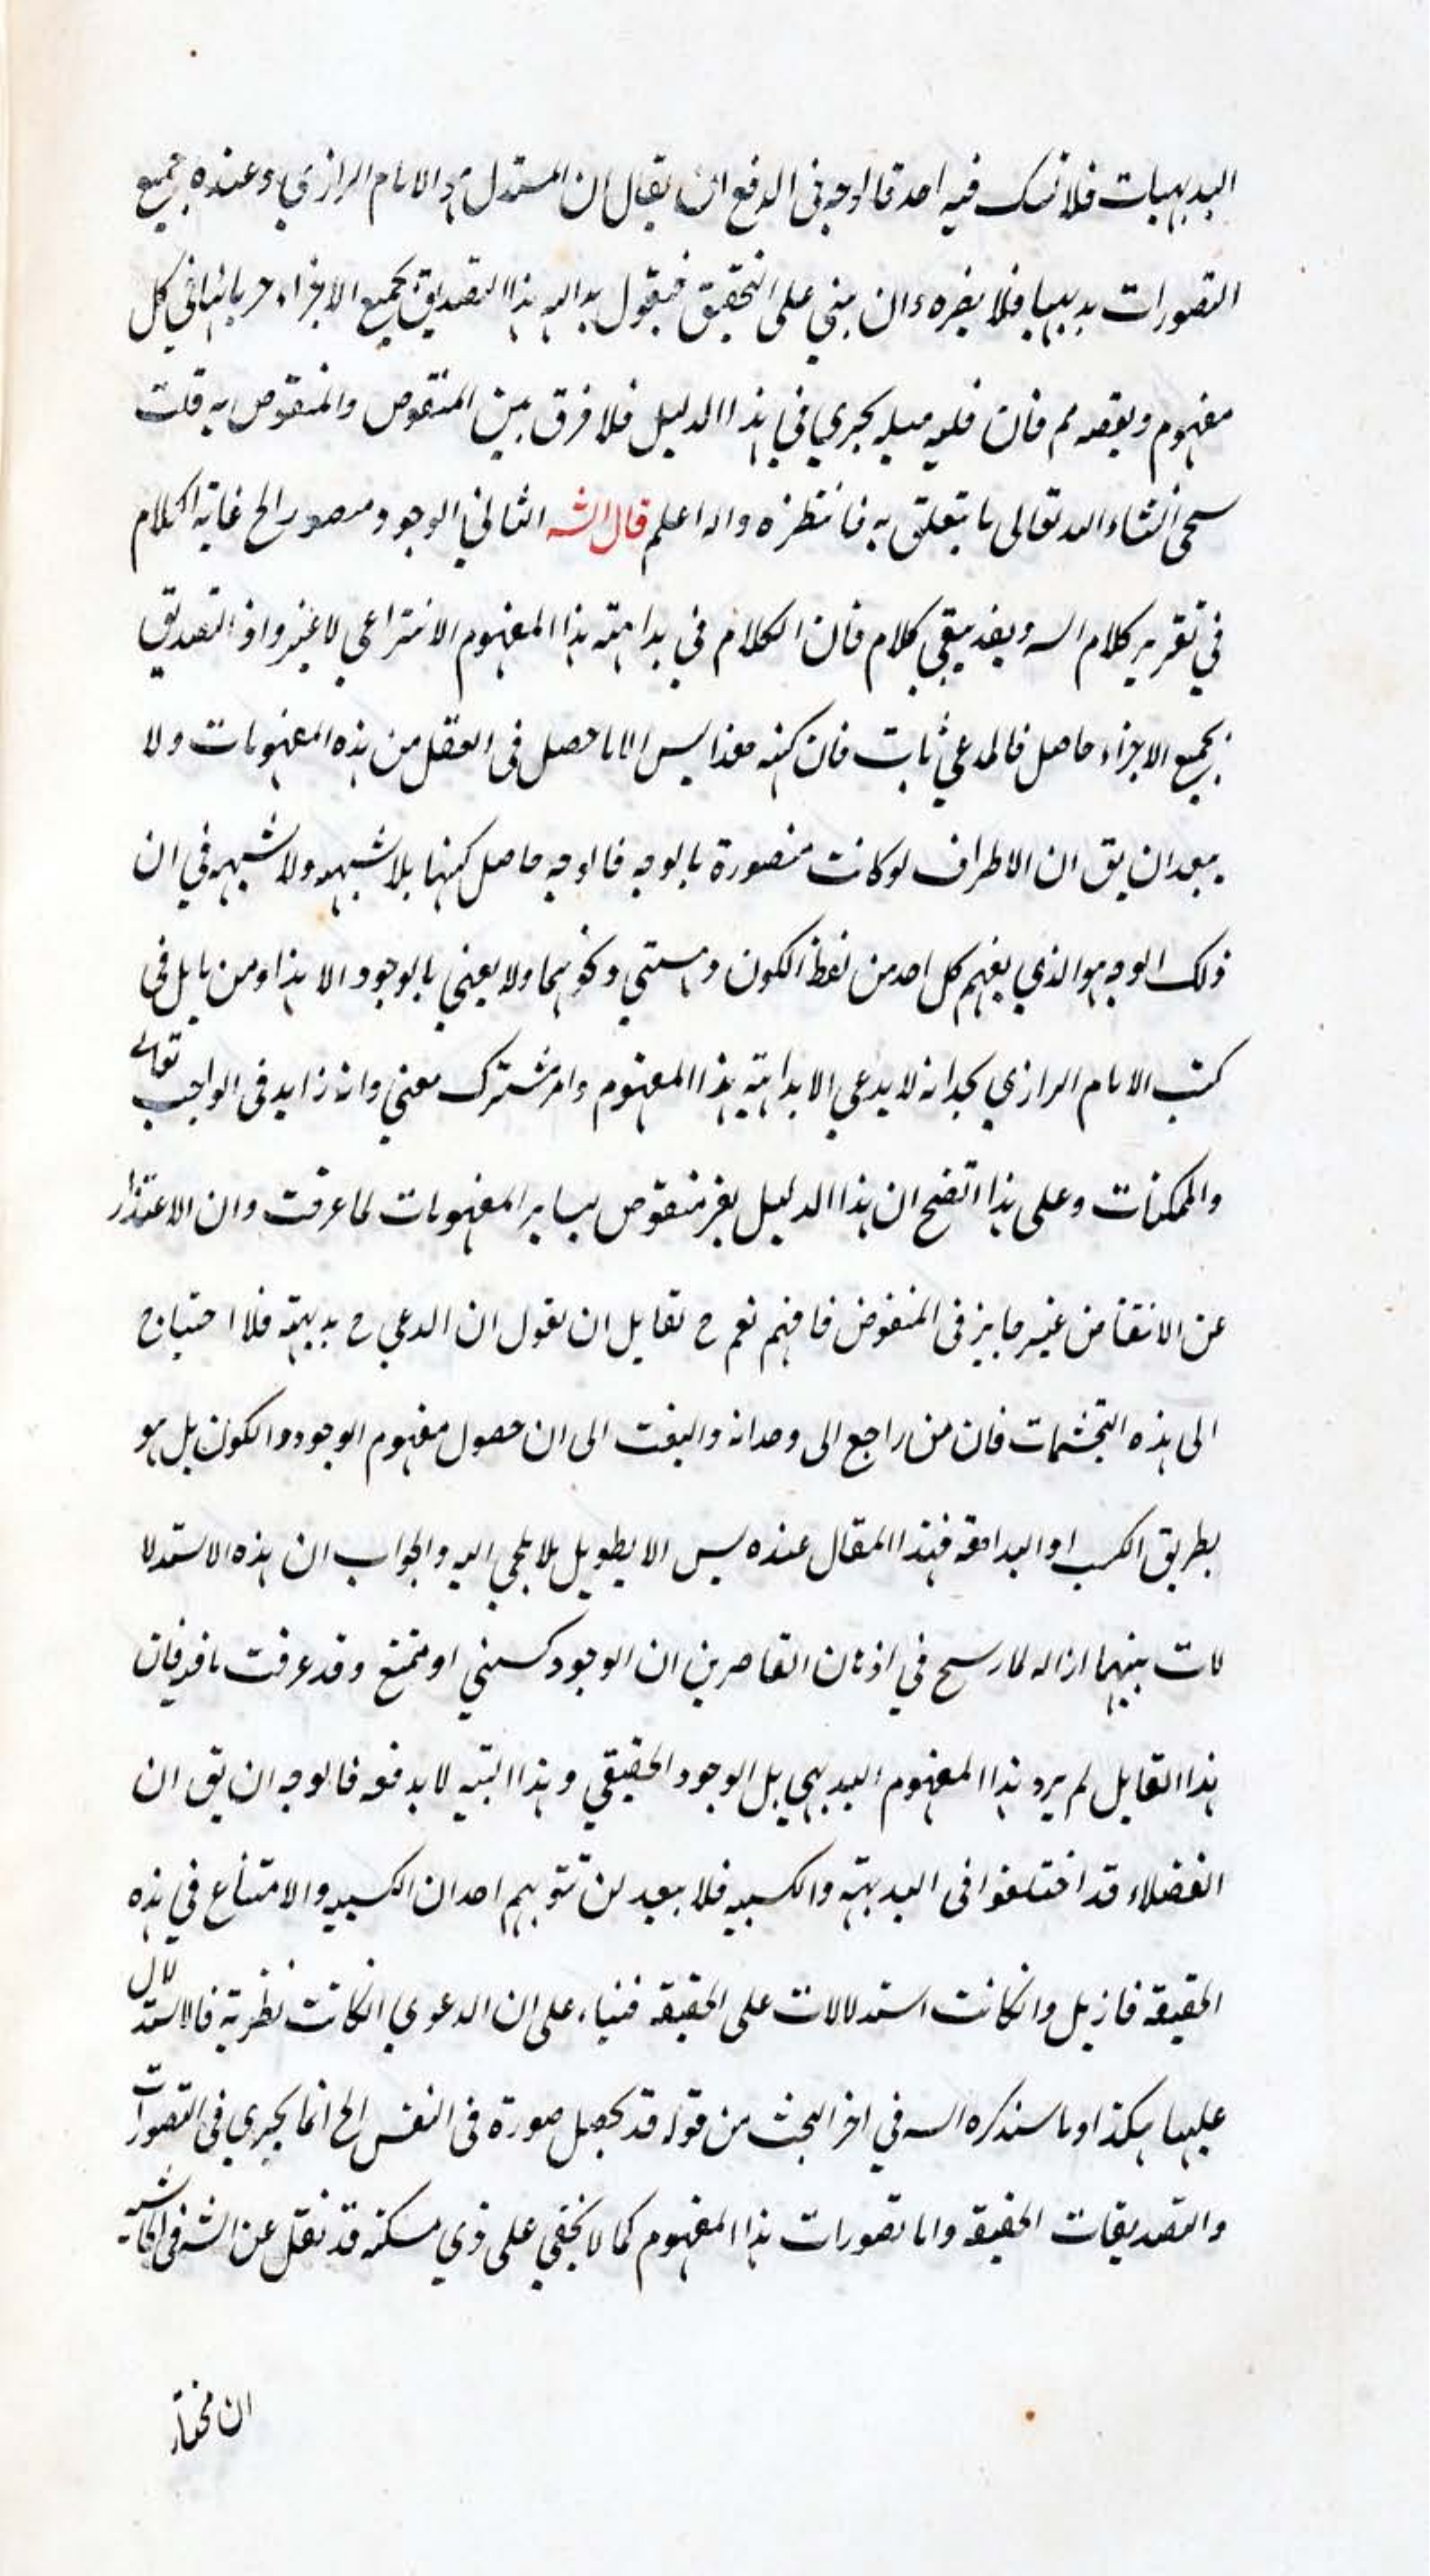 البديهيات فلا شك فيه احد فالوجه فى الدفع ان يقال ان المستدل هو الامام الرازي وعنده جميع
التصورات بديهيا فلا يضره وان بني على التحقيق فيقول بداهه هذا التصديق بجميع الاجزاء جريانها في كل
مفهوم وبعضه مم فان قلت مثله يجري في هذا الدليل فلا فرق بين المنقوض والمنقوض به قلت
سيجئ انشاء الله تعالى ما يتعلق به فانتظره والله اعلم قال الشه الثاني الوجود متصور الخ غاية الكلام
في تقرير كلام الشه وبعد يبقي كلام فان الكلام في بداهته هذا المفهوم الانتزاعي لا غير واذ التصديق
بجميع الاجزاء حاصل فالمدعي ثابت فان كنه هذا ليس الا ما حصل فى العقل من هذه المفهومات ولا
يبعد ان يق ان الاطراف لو كانت متصورة بالوجه فالوجه حاصل كنهها بلا شبهه ولا شبهه في ان
ذلك الوجه هو الذي يفهم كل احد من لفظ الكون وهستي ونحوهما ولا يعني بالوجود الا هذا ومن تامل فى
كتب الامام الرازي يجد انه لا يدعي الا بداهته هذا المفهوم وامر مشترك معني وانه زايد فى الواجب تعالى
والممكنات وعلى هذا اتضح ان هذا الدليل غير منقوض بساير المفهومات لما عرفت وان الاعتذار
عن الانتقاض غير جايز فى المنقوض فافهم نعم ح لقايل ان يقول ان المدعي ح بديهيته فلا احتياج
الى هذه التجشمات فان من راجع الى وجدانه والتفت الى ان حصول مفهوم الوجود والكون بل هو
بطريق الكسب او البداهة فهذا المقال عنده ليس الا تطويل بلا يلجي اليه والجواب ان هذه الاستدلا
لات تنبيها ازاله لما رسخ في اذهان القاصرين ان الوجود كسبي او ممتنع وقد عرفت ما فيه فان
هذا القايل لم يرد هذا المفهوم البديهي بل الوجود الحقيقي وهذا التنبيه لا يدفعه فالوجه ان يق ان
الفضلاء قد اختلفوا فى البديهيته والكسبيه فلا يبعد ان يتوهم احد ان الكسبيه والامتناع في هذه
الحقيقه فازيل وان كانت استدلالات على الحقيقه فبناء على ان الدعوي ان كانت نظرية فالاستدلال
عليها هكذا وما سنذكره الشه في اخر البحث من قوله قد يحصل صورة فى النفس الخ انما يجري فى التصورات
والتصديقات الحقيقه واما تصورات هذا المفهوم كما لا يخفي على ذي مسكة قد نقل عن الشه فى الحاشيه
ان مختار